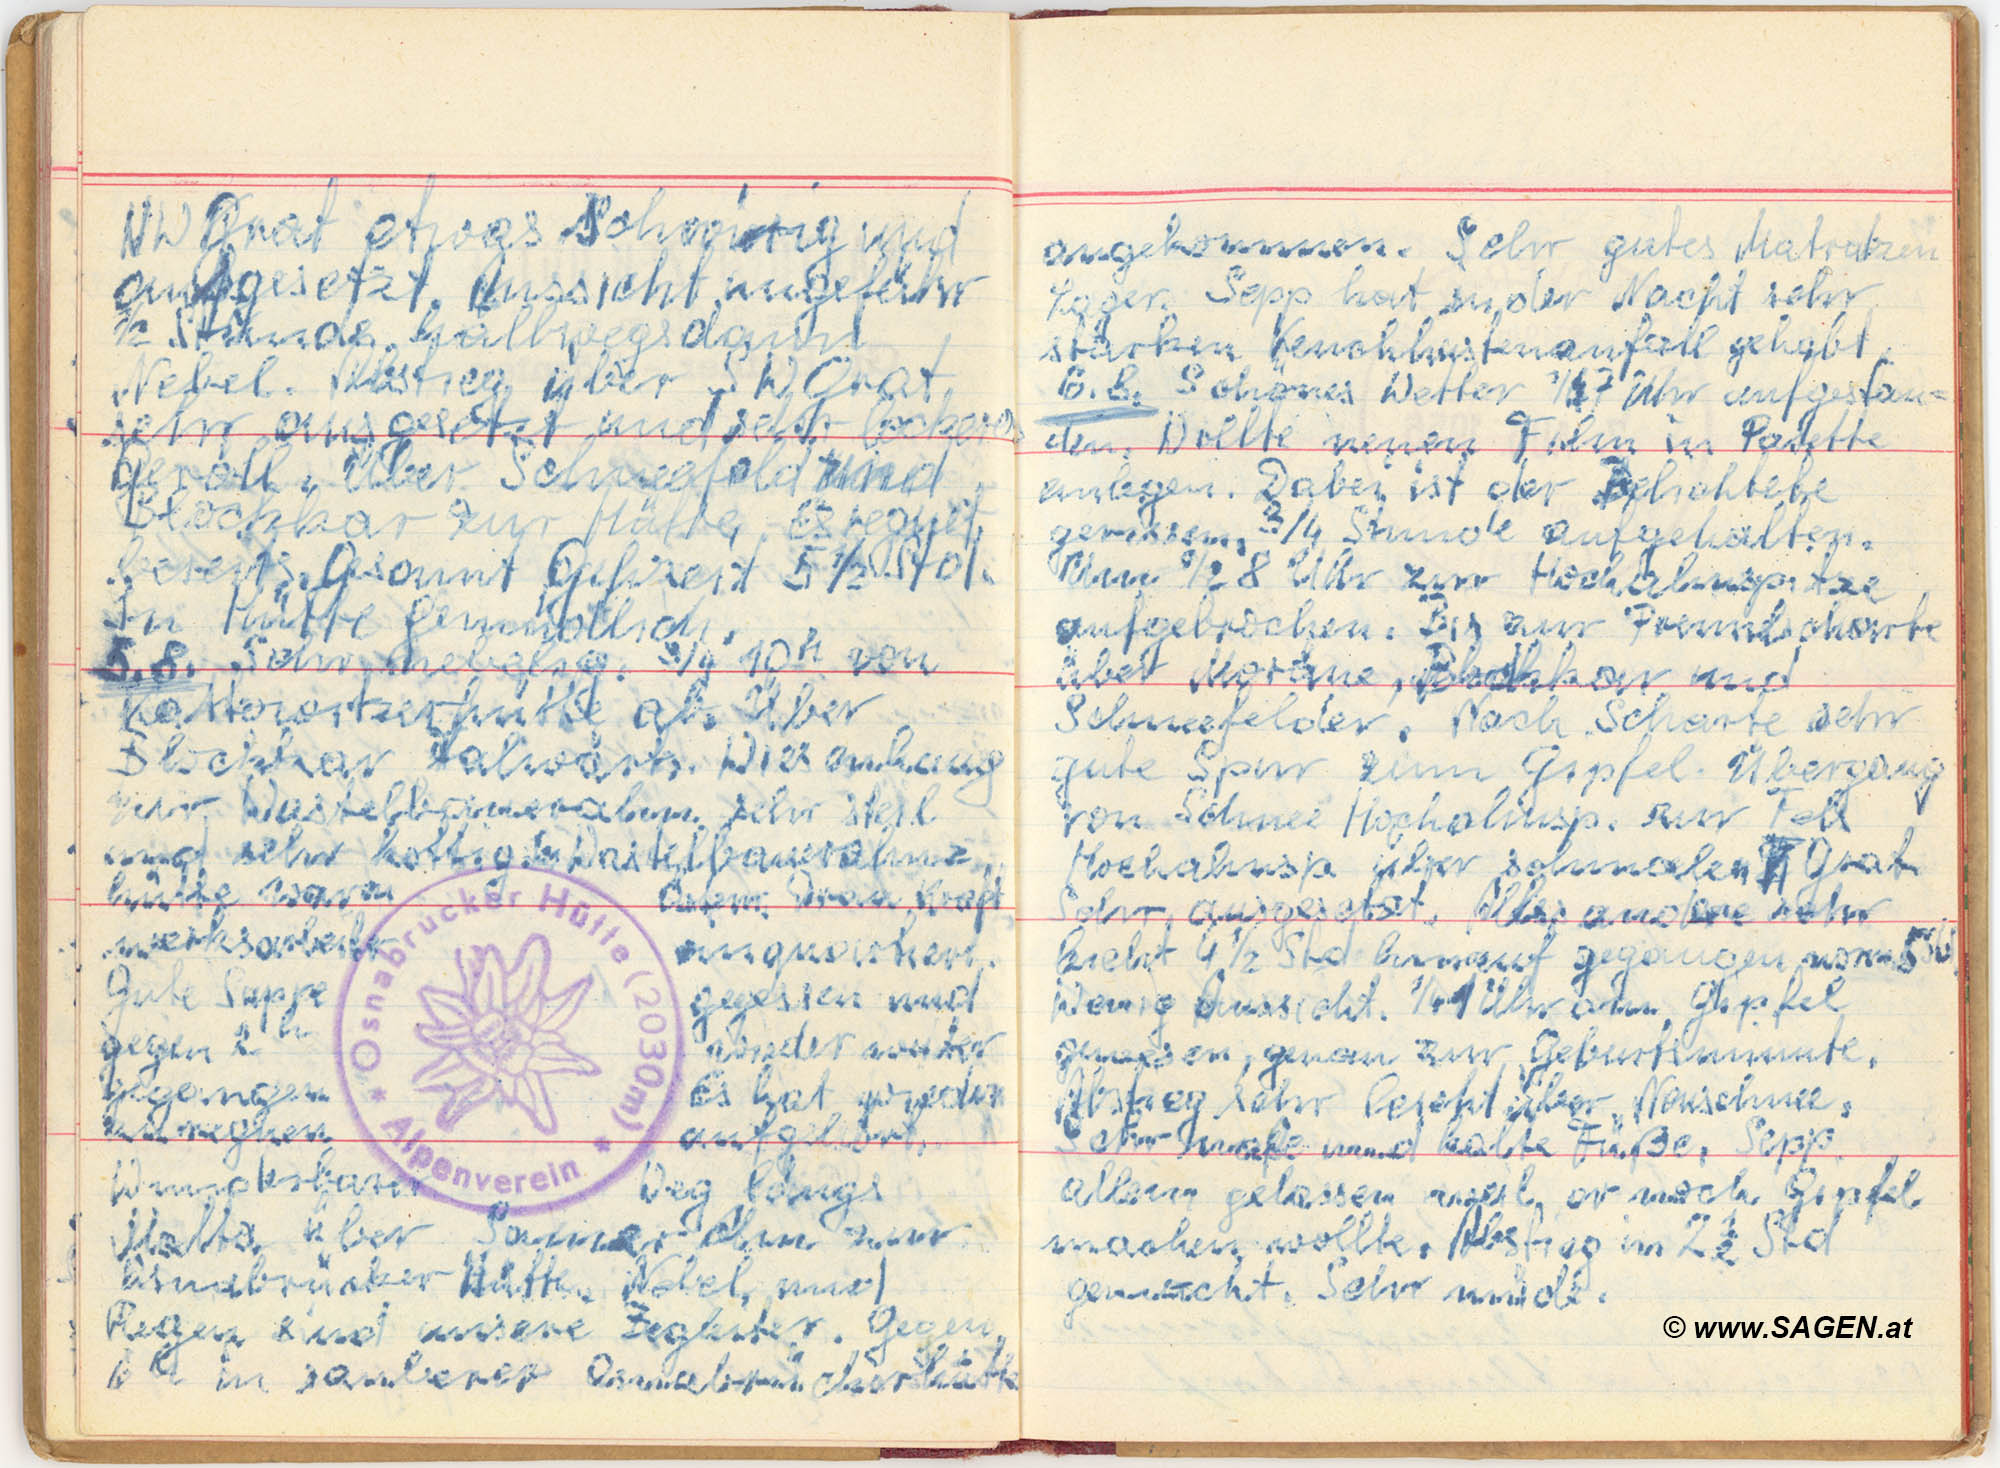 NW Grat etwas Schwirig und
ausgesetzt. Aussicht ungefähr
1/2 Stunde halbwegs dann
Nebel. Abstieg über SW Grat,
sehr ausgesetzt und sehr lockeres
Geröll. Über Schneefeld und
Blockkar zur Hütte. Es regnet
bereits. Gesamt Gehzeit 5 1/2 Std.
In Hütte gemütlich.
5.8. Sehr nebelig. 3/4 10h von
Kattowitzerhütte ab. Über
Blockkar talwärts. Wiesenhang
zur Wastelbaueralm sehr steil
und sehr kottig. In Wastelbaueralmz
hütte waren Österr. Drau Kraft
werksarbeiter einquartiert.
Gute Suppe gegessen und
gegen 2h wieder weiter
gegangen Es hat wieder
zu regnen aufgehört.
Wunderbarer Weg längs
Malta über Samer Alm zur
Osnabrücker Hütte. Nebel und
Regen sind unsere Begleiter. Gegen
h in sauberer Osnabrückerhütte
* Osnabrücker Hütte (2030m) *
Alpenverein
angekommen. Sehr gutes Matratzen
Lager. Sepp hat in der Nacht sehr
starken Keuchhustenanfall gehabt.
6.8. Schönes Wetter 1/4 7 Uhr aufgestan=
den. Wollte neuen Film in Kasette
einlegen. Dabei ist der
gerissen. 3/4 Stunde aufgehalten.
Um 1/2 8 Uhr zur Hochalmspitze
aufgebrochen. Bis zur Preimlscharte
über Moräne, Blockkar und
Schneefelder. Nach Scharte sehr
gute Spur zum Gipfel. Übergang
von Schnee Hochalmsp. zur Fels
Hochalmsp über schmalen Grat
Sehr ausgesetzt. Alles andere sehr
leicht 4 1/2 Std hinauf gegangen norm 5 Std.
Wenig Aussicht. 1/4 1 Uhr am Gipfel
gewesen, genau zur Geburtsminute.
Abstieg sehr leicht über Neuschnee.
Sehr nasse und kalte Füße. Sepp
allein gelassen weil er noch Gipfel
machen wollte. Abstieg in 2 1/2 Std
gemacht. Sehr müde.
© www.SAGEN.at